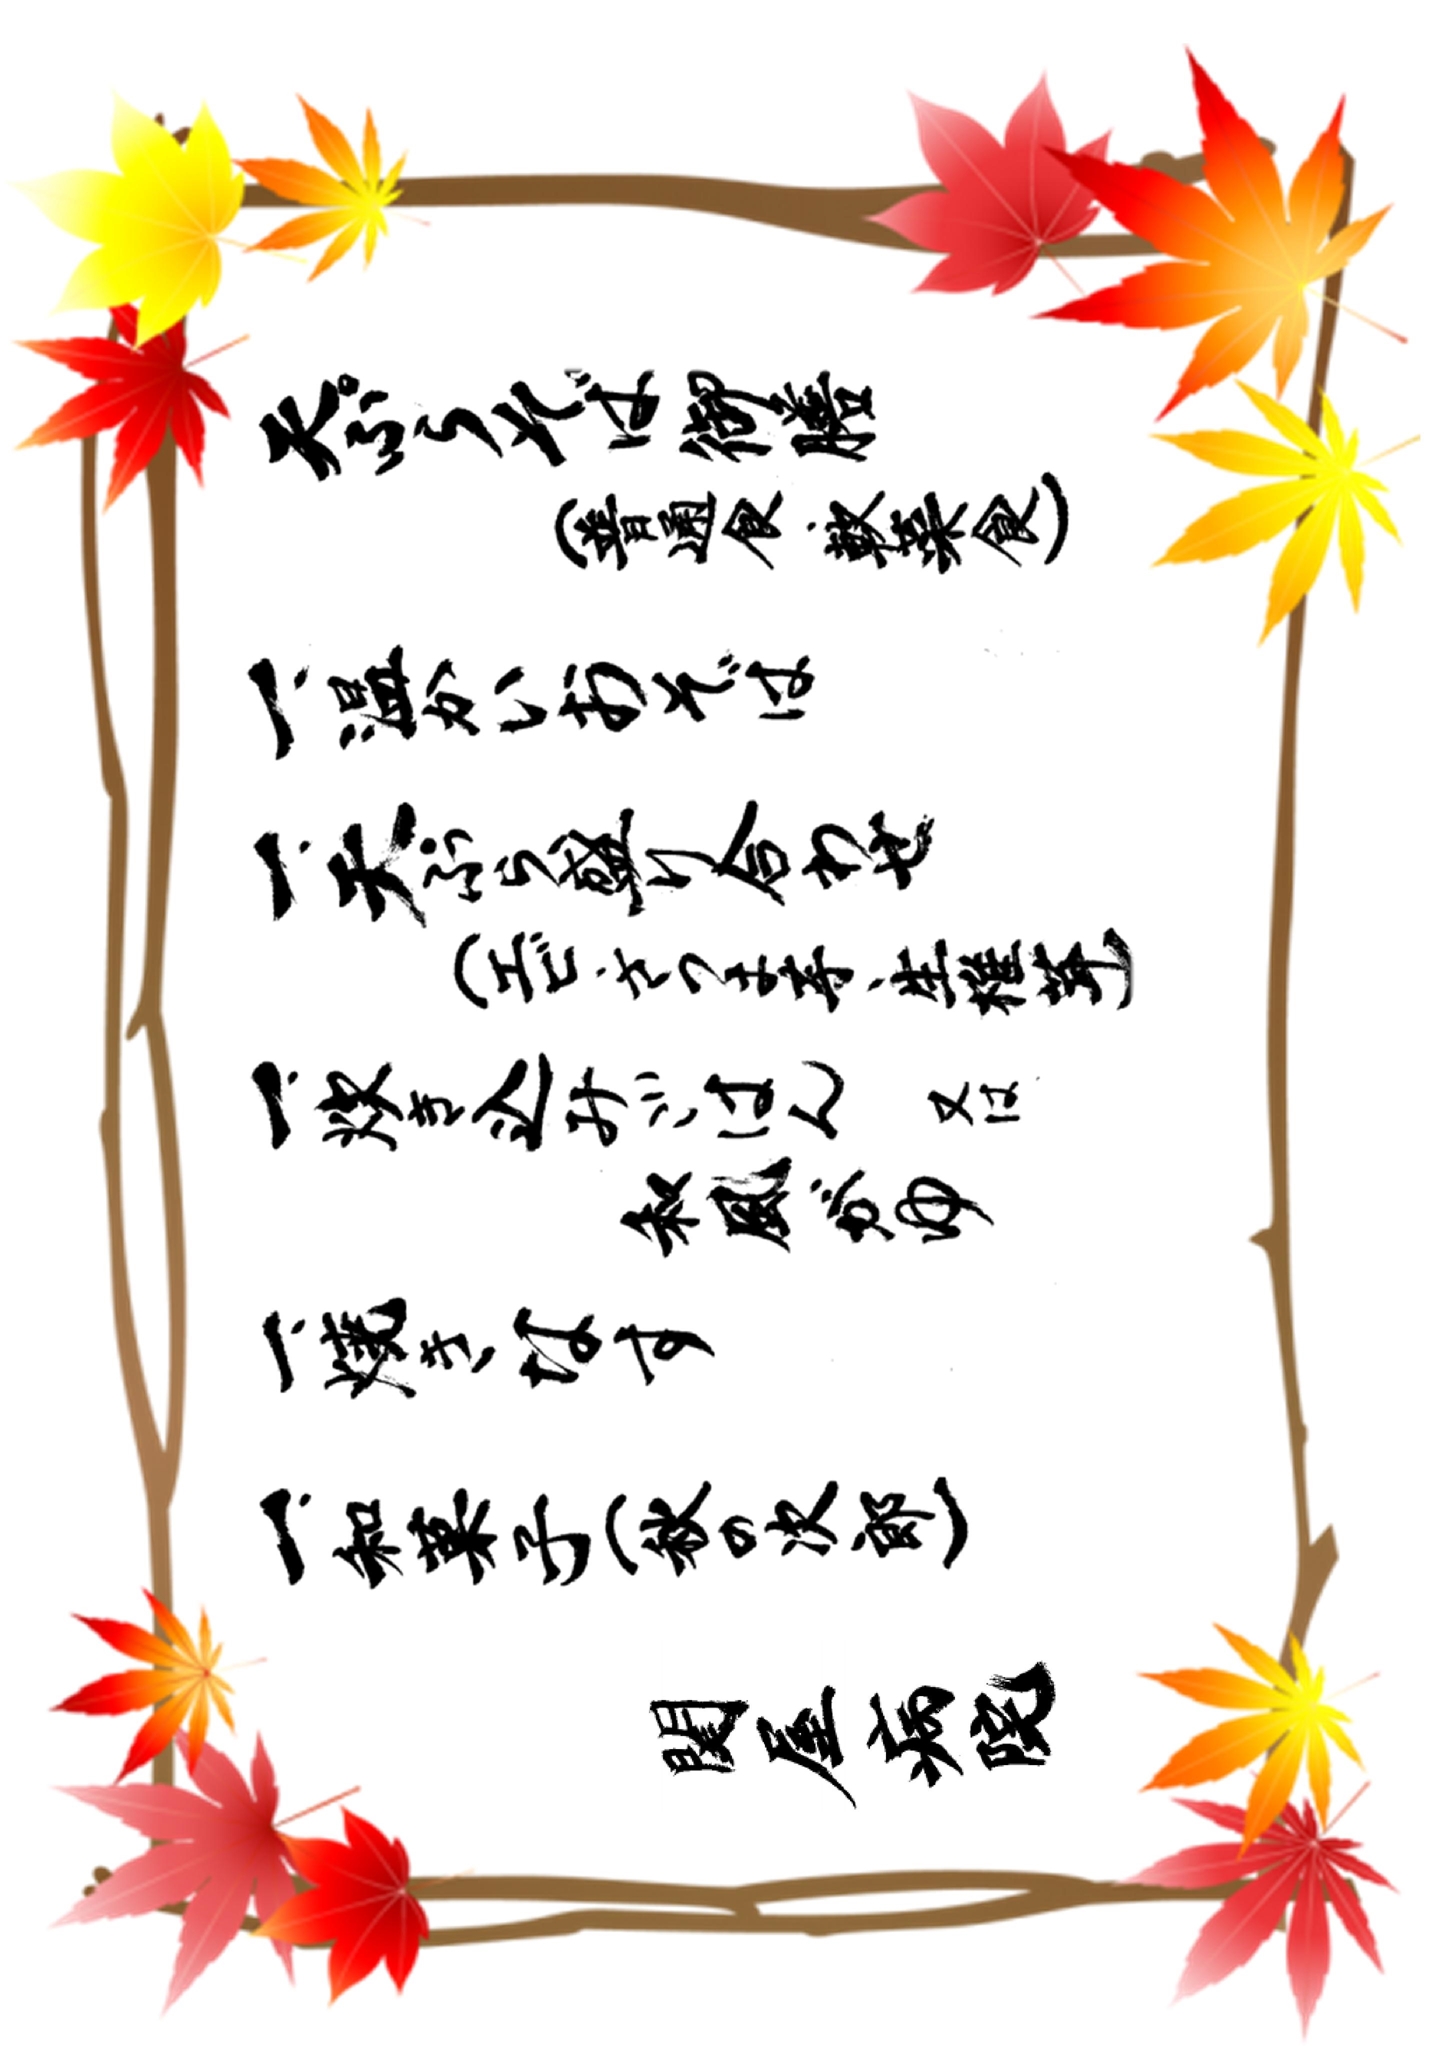 天ぷらそば御膳
(普通食・軟菜食)
一、温かいおそば
一、天ぷら盛り合わせ
(エビ・さつま芋・生椎茸)
一、炊き込みごはん 又は
和風がゆ
一、焼きなす
一、和菓子(秋の次郎)
関屋病院